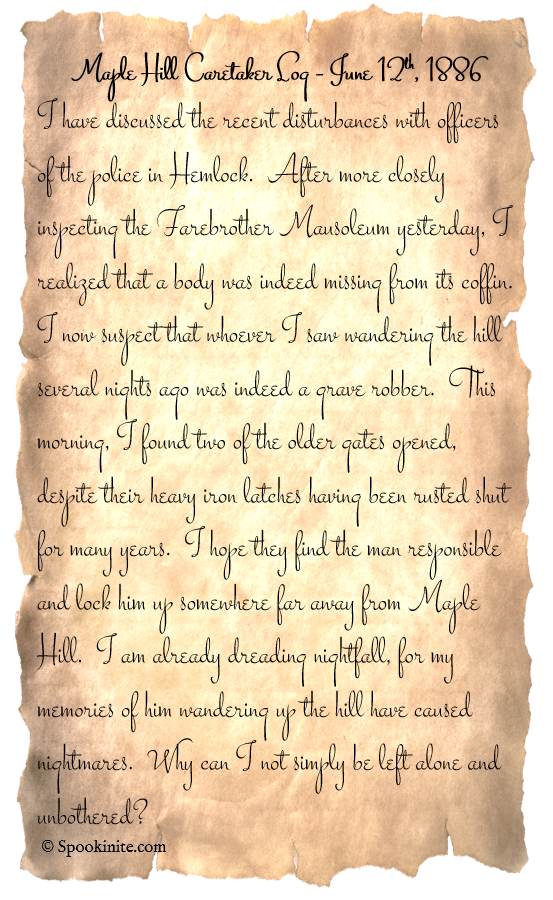 Maple Hill Caretaker Log - June 12th, 1886
I have discussed the recent disturbances with officers
of the police in Hemlock. After more closely
inspecting the Farebrother Mausoleum yesterday, I
realized that a body was indeed missing from its coffin.
I now suspect that whoever I saw wandering the hill
several nights ago was indeed a grave robber. This
morning, I found two of the older gates opened,
despite their heavy iron latches having been rusted shut
for many years. I hope they find the man responsible
and lock him up somewhere far away from Maple
Hill. I am already dreading nightfall, for my
memories of him wandering up the hill have caused
nightmares. Why can I not simply be left alone and
unbothered?
© Spookinite.com